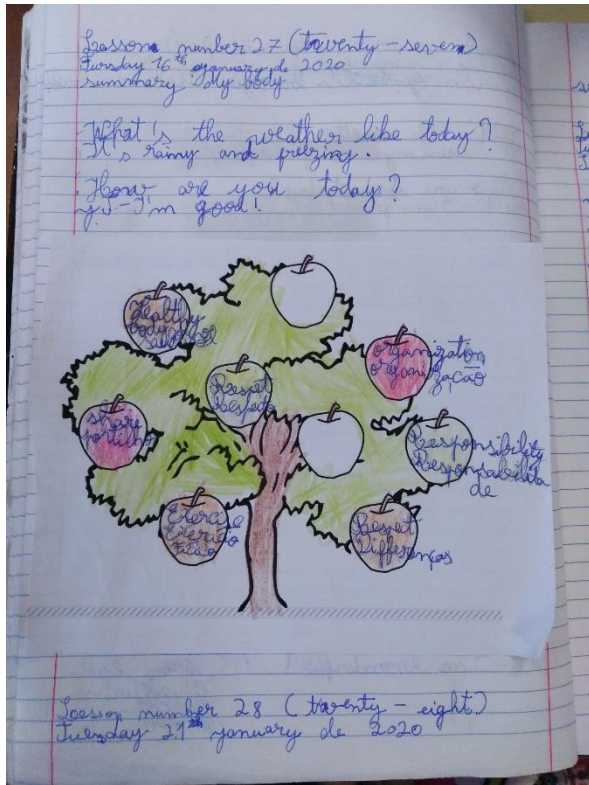 Lesson number 27 (twenty-seven)
Tursday 16th january de 2020
summary: My body
- What's the weather like today?
It's rainy and freeziny.
- How are you today?
- I'm good!
Healthy
body
Saudável
organization
organização
Respet
Respeito
share
partilha
Responsibility
Responsabilida
de
Exercise
Exercício
Físico
Respet
Differenças
Loesson number 28 (twenty-eight)
Tuesday 21th january de 2020